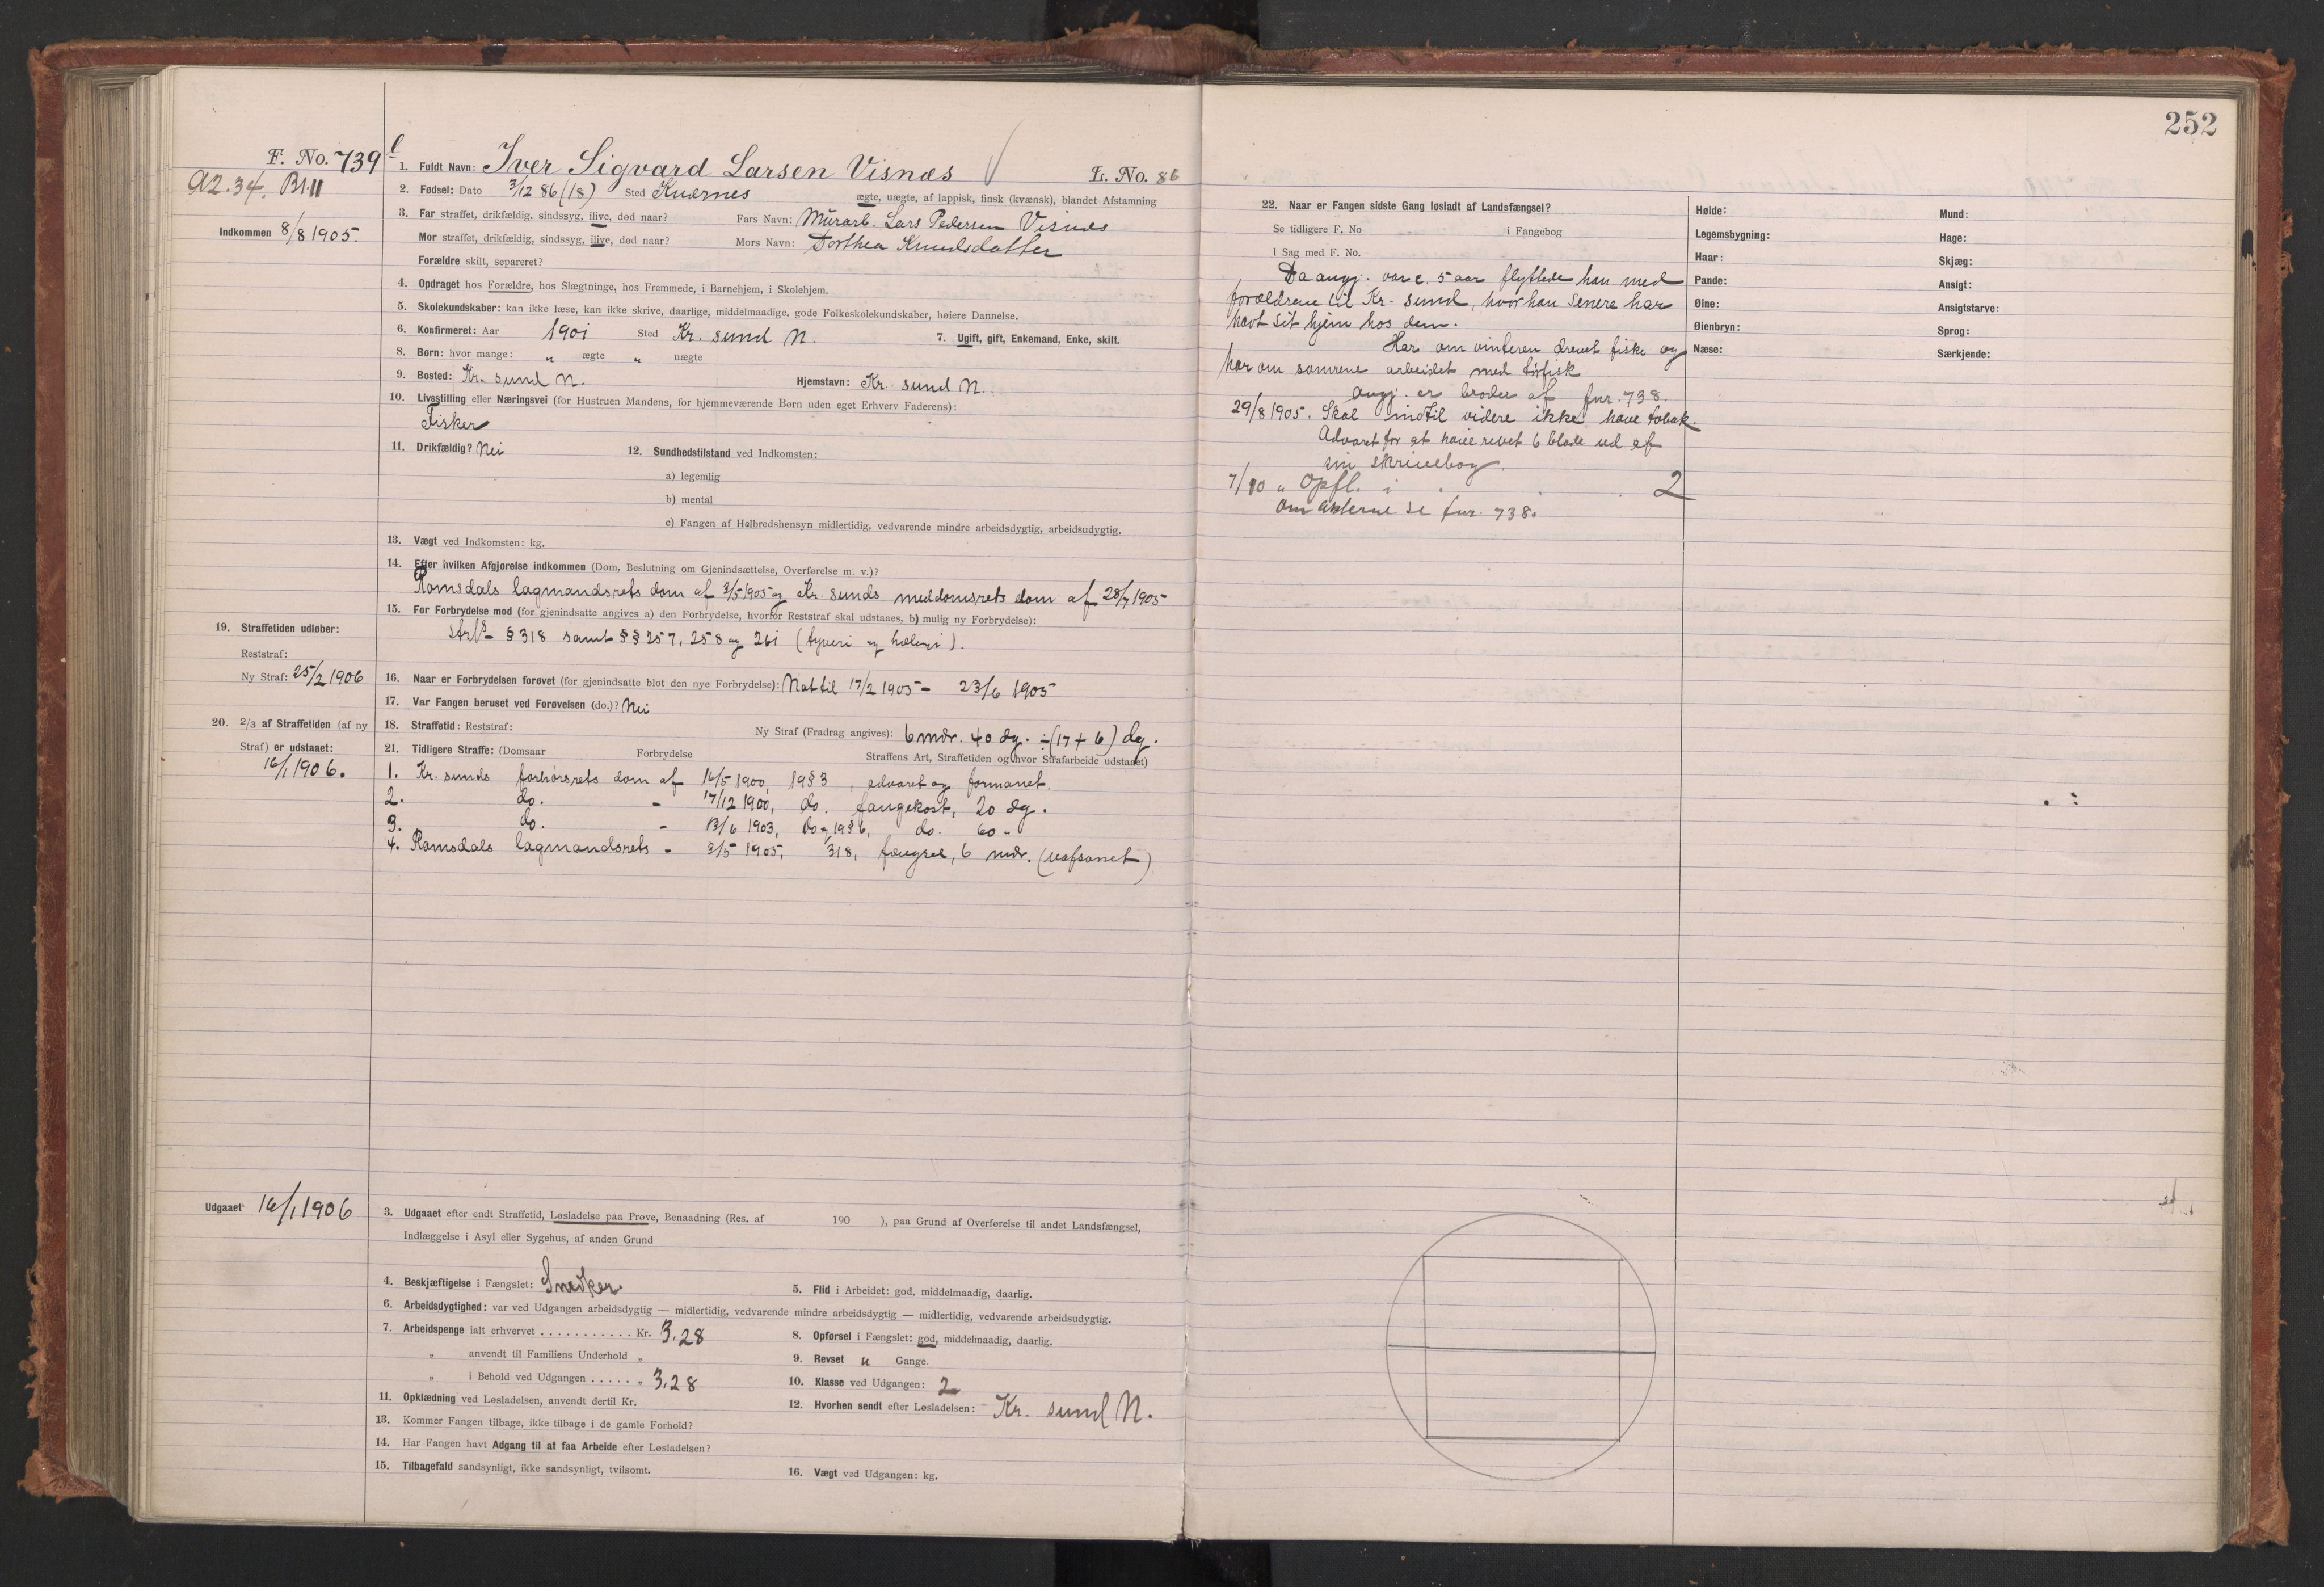 252
F. No. 739
A2.34. Bl.II
Indkommen 8/8 1905.
1. Fuldt Navn: Iver Sigvard Larsen Visnæs L. No. 86
2. Fødsel: Dato 3/12 86 (18) Sted Kværnes ægte, uægte, af lappisk, finsk (kvænsk), blandet Afstamning
3. Far straffet, drikfældig, sindssyg, ilive, død naar? Fars Navn: Murarb. Lars Pedersen Visnæs
Mor straffet, drikfældig, sindssyg, ilive, død naar? Mors Navn: Dorthea Knudsdatter
Forældre skilt, separeret?
4. Opdraget hos Forældre, hos Slægtninge, hos Fremmede, i Barnehjem, i Skolehjem.
5. Skolekundskaber: kan ikke læse, kan ikke skrive, daarlige, middelmaadige, gode Folkeskolekundskaber, høiere Dannelse.
6. Konfirmeret: Aar 1901 Sted Kr. sund N. 7. Ugift, gift, Enkemand, Enke, skilt.
8. Børn: hvor mange: " ægte " uægte
9. Bosted: Kr. sund N. Hjemstavn: Kr. sund N.
10. Livsstilling eller Næringsvei (for Hustruen Mandens, for hjemmeværende Børn uden eget Erhverv Faderens):
Fisker
11. Drikfældig? Nei 12. Sundhedstilstand ved Indkomsten:
a) legemlig
b) mental
c) Fangen af Helbredshensyn midlertidig, vedvarende mindre arbeidsdygtig, arbeidsudygtig.
13. Vægt ved Indkomsten: kg.
14. Efter hvilken Afgjørelse indkommen (Dom, Beslutning om Gjenindsættelse, Overførelse m. v.)?
Romsdals lagmandsrets dom af 3/5 1905 og Kr. sunds meddomsrets dom af 28/7 1905
15. For Forbrydelse mod (for gjenindsatte angives a) den Forbrydelse, hvorfor Reststraf skal udstaaes, b) mulig ny Forbrydelse):
§ 318 samt §§ 257, 258 og 261 (tyveri og hæleri).
19. Straffetiden udløber:
Reststraf:
Ny Straf: 25/2 1906
16. Naar er Forbrydelsen forøvet (for gjenindsatte blot den nye Forbrydelse): Nat til 17/2 1905 - 23/6 1905
17. Var Fangen beruset ved Forøvelsen (do.)? Nei
20. 2/3 af Straffetiden (af ny
Straf) er udstaaet:
16/1 1906.
18. Straffetid: Reststraf: Ny Straf (Fradrag angives): 6 mdr. 40 dg. ÷ (17 + 6) dg.
21. Tidligere Straffe: (Domsaar Forbrydelse Straffens Art, Straffetiden og hvor Strafarbeide udstaaet)
1. Kr. sunds forhørsrets dom af 16/5 1900, 19 § 3, advaret og formanet.
2. do. - 17/12 1900, do. fangekost, 20 dg.
3. do. - 13/6 1903, do og 19 § 6, do. 60 "
4. Romsdals lagmandsrets - 3/5 1905, 318, fængsel, 6 mdr. (uafsonet)
Udgaaet 16/1 1906
3. Udgaaet efter endt Straffetid, Løsladelse paa Prøve, Benaadning (Res. af 190 ), paa Grund af Overførelse til andet Landsfængsel,
Indlæggelse i Asyl eller Sygehus, af anden Grund
4. Beskjæftigelse i Fængslet: Snedker 5. Flid i Arbeidet: god, middelmaadig, daarlig.
6. Arbeidsdygtighed: var ved Udgangen arbeidsdygtig — midlertidig, vedvarende mindre arbeidsdygtig — midlertidig, vedvarende arbeidsudygtig.
7. Arbeidspenge ialt erhvervet . . . . . . . . . . . Kr. 3.28 8. Opførsel i Fængslet: god, middelmaadig, daarlig.
" anvendt til Familiens Underhold " 9. Revset " Gange.
" i Behold ved Udgangen . . . . . " 3.28 10. Klasse ved Udgangen: 2
11. Opklædning ved Løsladelsen, anvendt dertil Kr. 12. Hvorhen sendt efter Løsladelsen: Kr. sund N.
13. Kommer Fangen tilbage, ikke tilbage i de gamle Forhold?
14. Har Fangen havt Adgang til at faa Arbeide efter Løsladelsen?
15. Tilbagefald sandsynligt, ikke sandsynligt, tvilsomt. 16. Vægt ved Udgangen: kg.
22. Naar er Fangen sidste Gang løsladt af Landsfængsel?
Se tidligere F. No i Fangebog
I Sag med F. No.
Da angj. var c. 5 aar flyttede han med
forældrene til Kr. sund, hvor han senere har
havt sit hjem hos dem.
Har om vinteren drevet fiske og
har om somrene arbeidet med tørfisk
angj. er broder af fnr. 738.
29/8 1905. Skal indtil videre ikke have tobak.
Advaret for at have revet 6 blade ud af
sin skrivebog.
7/10 " Opfl. i 2
Om akterne se fnr. 738.
Høide: Mund:
Legemsbygning: Hage:
Haar: Skjæg:
Pande: Ansigt:
Øine: Ansigtstarve:
Øienbryn: Sprog:
Næse: Særkjende: